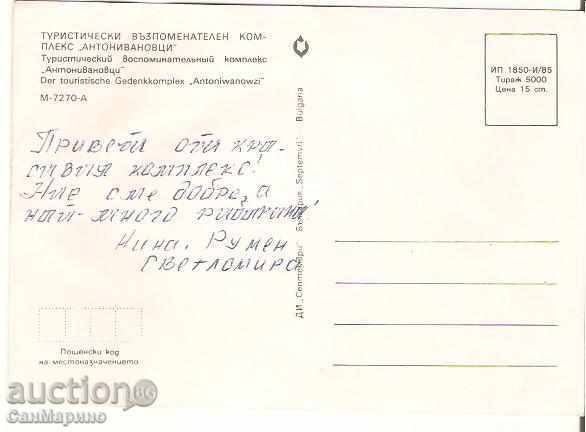 ТУРИСТИЧЕСКИ ВЪЗПОМЕНАТЕЛЕН КОМ-
ПЛЕКС „АНТОНИВАНОВЦИ"
Туристический воспоминательный комплекс
„Антонивановци"
Der touristische Gedenkkomplex „Antoniwanowzi"
М-7270-А
ИП 1850-И/85
Тираж 5000
Цена 15 ст.
Привети от кра-
сивия комплекс!
Ние сме добре, а
най-много
Нина, Румен
Светломира
ДИ „Септември" България „Septemvri" Bulgaria
Пощенски код
на местоназначението
auction BG
СанМарино